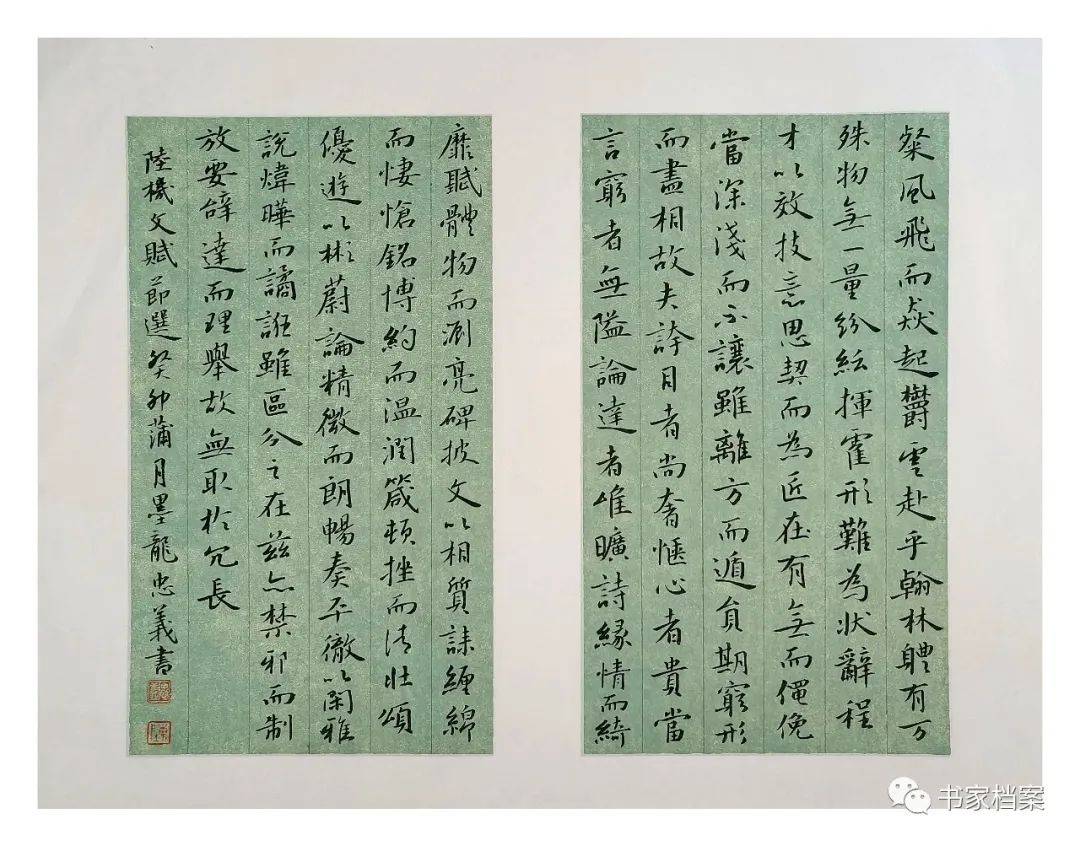 粲風飛而猋起欝雲赴乎翰林軆有万
殊物無一量紛紜揮霍形難為狀辭程
才以效技意思契而為匠在有無而僶俛
當深淺而不讓雖離方而遁員期窮形
而盡相故夫誇目者尚奢愜心者貴當
言窮者無隘論達者唯曠詩緣情而綺
靡賦體物而瀏亮碑披文以相質誄纏綿
而悽愴銘博約而溫潤箴頓挫而清壯頌
優遊以彬蔚論精微而朗暢奏平徹以閑雅
說煒曄而譎誑雖區分之在茲亦禁邪而制
放要辭達而理舉故無取於冗長
陸機文賦節選癸卯蒲月墨龍忠義書
书家档案